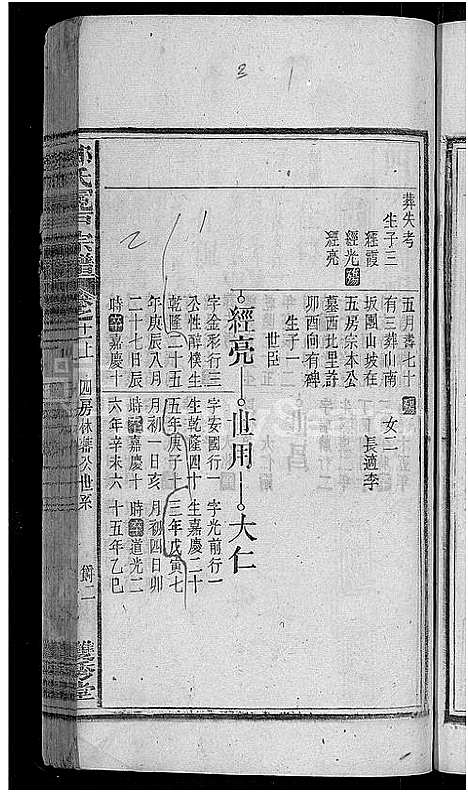 葬失考
生子三
經霞
經光殤
經亮
五月壽七十
有三葬山南
坂園山坡在
五房宗本公
墓西北里許
卯酉向有碑
生子一
世臣
殤
女二
長適李
經亮
字金彩行三
公性醇樸生
乾隆二十五
年庚辰八月
二十七日辰
時卒嘉慶十
世用
字安國行一
生乾隆四十
五年庚子十
月初一日亥
時卒嘉慶十
六年辛未六
大仁
字光前行一
生嘉慶二十
三年戊寅七
月初四日卯
時卒道光二
十五年乙巳
氏 宗譜
卷之十上
四房林 公世系
二
堂
2